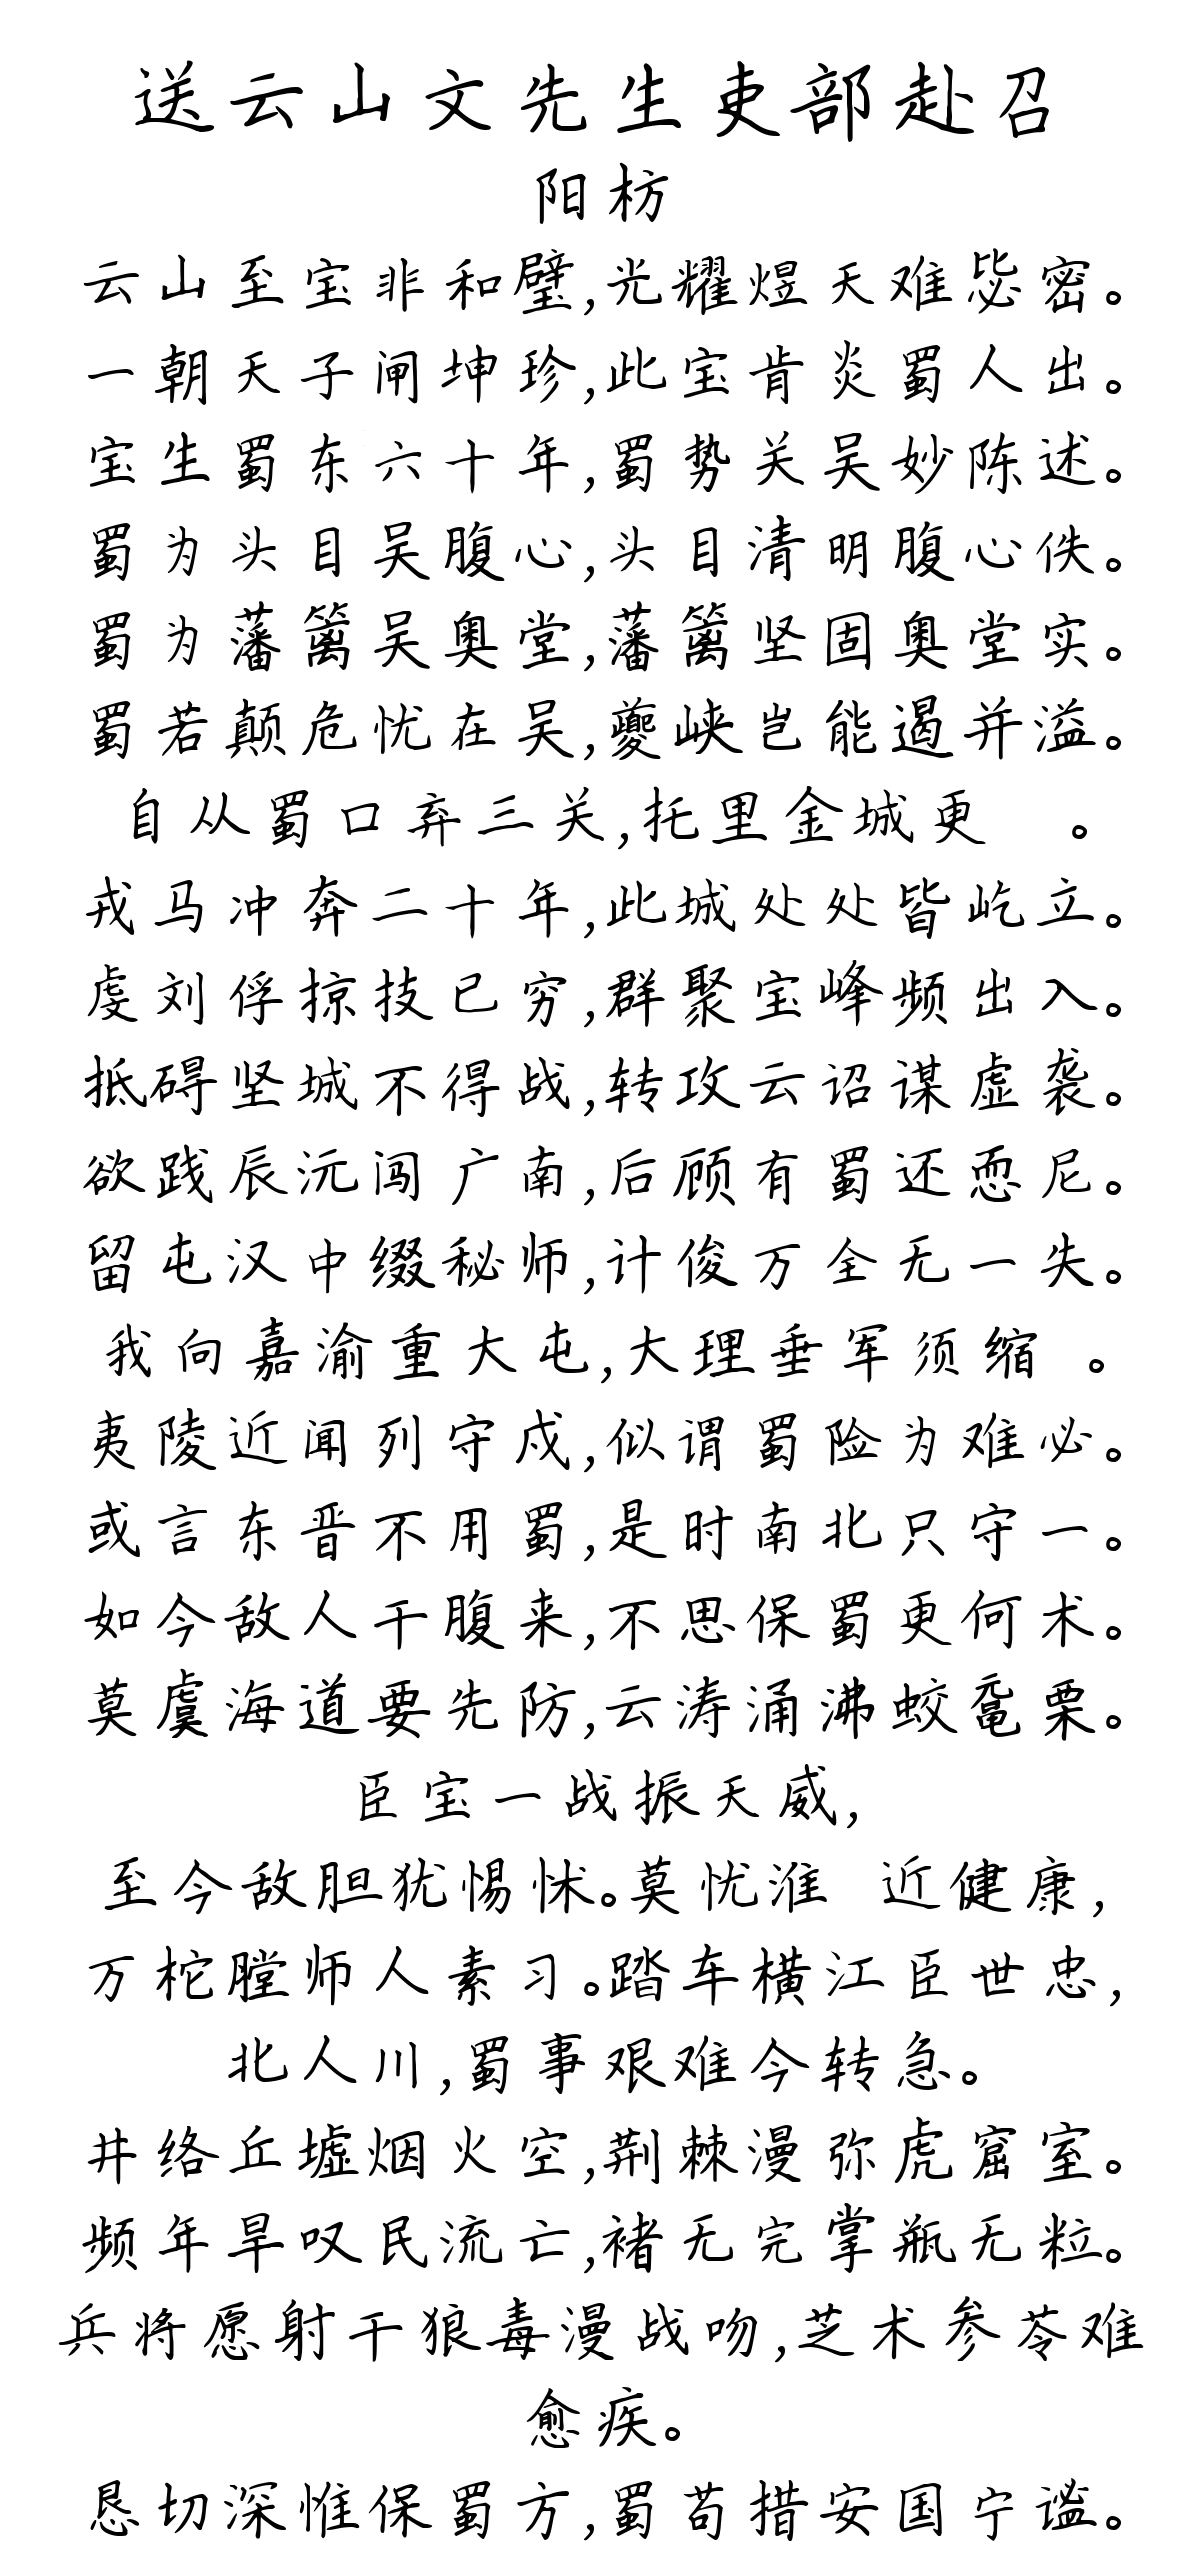 送云山文先生吏部赴召
阳枋
云山至宝非和璧,光耀煜天难毖密。
一朝天子闸坤珍,此宝肯炎蜀人出。
宝生蜀东六十年,蜀势关吴妙陈述。
蜀为头目吴腹心,头目清明腹心佚。
蜀为藩篱吴奥堂,藩篱坚固奥堂实。
蜀若颠危忧在吴,夔峡岂能遏并溢。
自从蜀口弃三关,托里金城更 。
戎马冲奔二十年,此城处处皆屹立。
虔刘俘掠技已穷,群聚宝峰频出入。
抵碍坚城不得战,转攻云诏谋虚袭。
欲践辰沅闯广南,后顾有蜀还恧尼。
留屯汉中缀秘师,计俊万全无一失。
我向嘉渝重大屯,大理垂军须缩 。
夷陵近闻列守戍,似谓蜀险为难必。
或言东晋不用蜀,是时南北只守一。
如今敌人干腹来,不思保蜀更何术。
莫虞海道要先防,云涛涌沸蛟鼋栗。
臣宝一战振天威,
至今敌胆犹惕怵。莫忧淮 近健康,
万柁瞠师人素习。踏车横江臣世忠,
北人川,蜀事艰难今转急。
井络丘墟烟火空,荆棘漫弥虎窟室。
频年旱叹民流亡,褚无完掌瓶无粒。
兵将愿射干狼毒漫战吻,芝术参苓难
愈疾。
恳切深惟保蜀方,蜀苟措安国宁谧。